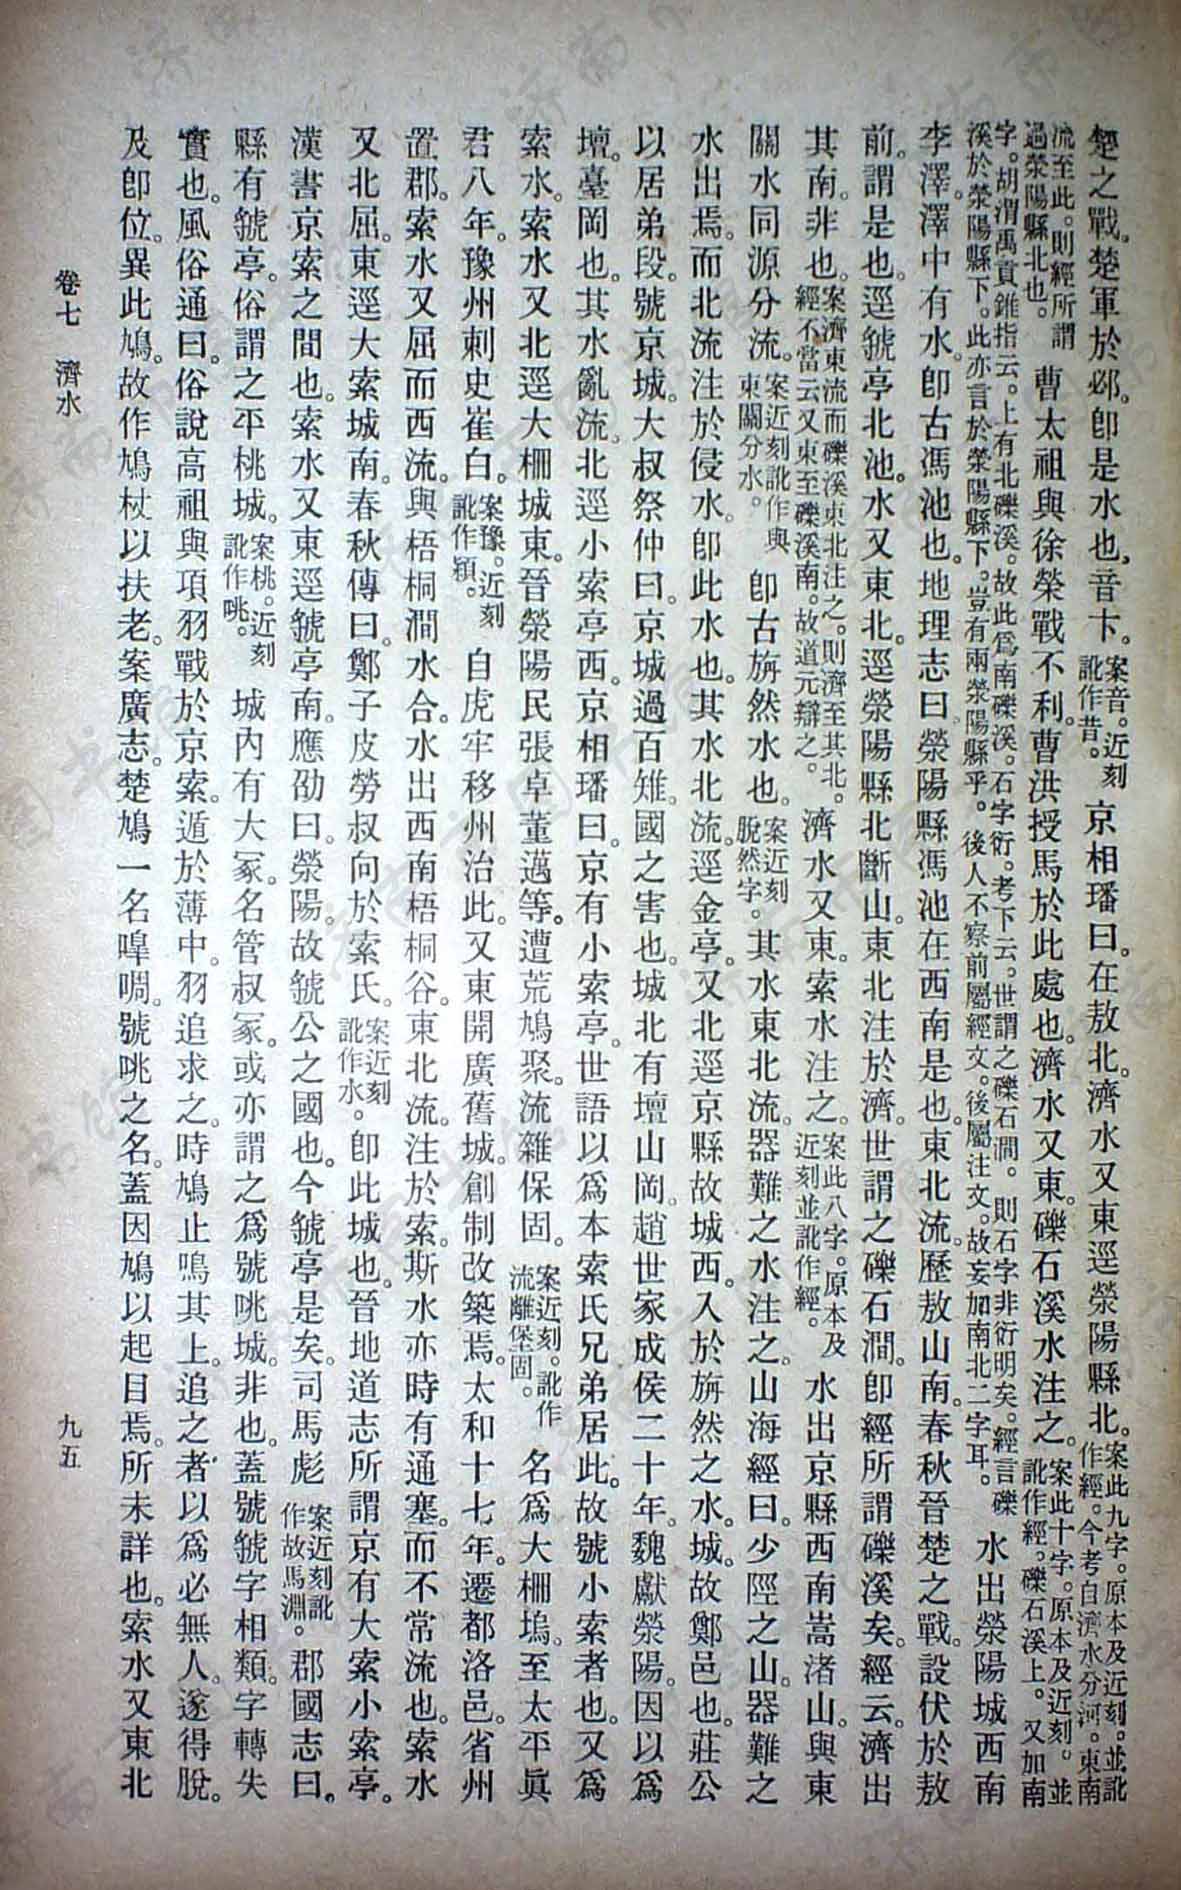 楚之戰。楚軍於邲。卽是水也。音卞。案音。近刻訛作昔。京相璠曰。在敖北。濟水又東逕滎陽縣北。案此九字。原本及近刻。並訛作經。今考自濟水分河。東南
流至此。則經所謂過滎陽縣北也。曹太祖與徐榮戰不利。曹洪授馬於此處也。濟水又東。礫石溪水注之。案此十字。原本及近刻。並訛作經。礫石溪上。又加南
字。胡渭禹貢錐指云。上有北礫溪。故此爲南礫溪。石字衍。考下云。世謂之礫石澗。則石字非衍明矣。經言礫溪於滎陽縣下。此亦言於滎陽縣下。豈有兩滎陽縣乎。後人不察前屬經文。後屬注文。故妄加南北二字耳。水出滎陽城西南
李澤。澤中有水。卽古馮池也。地理志曰。滎陽縣馮池在西南是也。東北流。歷敖山南。春秋晉楚之戰。設伏於敖
前。謂是也。逕虢亭北。池水又東北。逕滎陽縣北斷山。東北注於濟。世謂之礫石澗。卽經所謂礫溪矣。經云。濟出
其南。非也。案濟東流而礫溪東北注之。則濟至其北。經不當云又東至礫溪南。故道元辯之。濟水又東。索水注之。案此八字。原本及近刻並訛作經。水出京縣西南嵩渚山。與東
關水同源分流。案近刻訛作與東關分水。卽古旃然水也。案近刻脫然字。其水東北流。器難之水注之。山海經曰。少陘之山。器難之
水出焉。而北流注於侵水。卽此水也。其水北流。逕金亭。又北逕京縣故城西。入於旃然之水。城。故鄭邑也。莊公
以居弟段。號京城。大叔祭仲曰。京城過百雉。國之害也。城北有壇山岡。趙世家成侯二十年。魏獻滎陽。因以爲
壇臺岡也。其水亂流。北逕小索亭西。京相璠曰。京有小索亭。世語以爲本索氏兄弟居此。故號小索者也。又爲
索水。索水又北逕大柵城東。晉滎陽民張卓董邁等。遭荒鳩聚。流雜保固。案近刻。訛作流離堡固。名爲大柵塢。至太平眞
君八年。豫州刺史崔白。案豫。近刻訛作潁。自虎牢移州治此。又東開廣舊城。創制改築焉。太和十七年。遷都洛邑。省州
置郡。索水又屈而西流。與梧桐澗水合。水出西南梧桐谷。東北流。注於索。斯水亦時有通塞。而不常流也。索水
又北屈。東逕大索城南。春秋傳曰。鄭子皮勞叔向於索氏。案近刻訛作水。卽此城也。晉地道志所謂京有大索小索亭。
漢書京索之間也。索水又東逕虢亭南。應劭曰。滎陽。故虢公之國也。今虢亭是矣。司馬彪案近刻訛作故馬淵。郡國志曰。
縣有虢亭。俗謂之平桃城。案桃。近刻訛作咷。城內有大冢。名管叔冢。或亦謂之爲號咷城。非也。蓋號虢字相類。字轉失
實也。風俗通曰。俗說高祖與項羽戰於京索。遁於薄中。羽追求之。時鳩止鳴其上。追之者以爲必無人。遂得脫。
及卽位。異此鳩。故作鳩杖以扶老。案廣志。楚鳩一名嘷啁。號咷之名。蓋因鳩以起目焉。所未詳也。索水又東北
卷七 濟水 九五